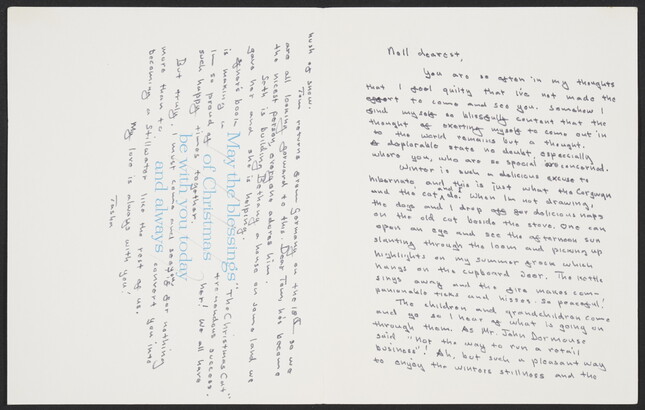 Nell dearest,
You are so often in my thoughts
that I feel guilty that I've not made the
effort to come and see you. Somehow I
find myself so blissfully content that the
thought of exerting myself to come out in
to the world remains but a thought.
A deplorable state no doubt especially
where you, who are so special are concerned.
Winter is such a delicious excuse to
hibernate, and this is just what the Corgwyn
and the cat and I do. When I'm not drawing,
the dogs and I drop off for delicious naps
on the old cot beside the stove. One can
open an eye and see the afternoon sun
slanting through the loom and picking up
highlights on my summer frock which
hangs on the cupboard door. The kettle
sings away and the fire makes com-
panionable ticks and hisses. So peaceful!
The children and grandchildren come
and go so I hear of what is going on
through them. As Mr. John Dormouse
said "not the way to run a retail
business"! Ah, but such a pleasant way
to enjoy the winters stillness and the
hush of snow.
Tom returns from Germany on the 18th so we
are all looking forward to this. Dear Tom, he's become
the nicest person, everyone adores him.
Seth is building Bethany a house on some land we
gave her and she is helping.
"The Christmas Cat"
is making a tremendous success.
I'm so proud of her! We all have
such happy times together.
But truly, I must come and see you for nothing
more than to convert you into
becoming a Stillwater like the rest of us.
My love is always with you!
Tasha
May the blessings
of Christmas
be with you today
and always